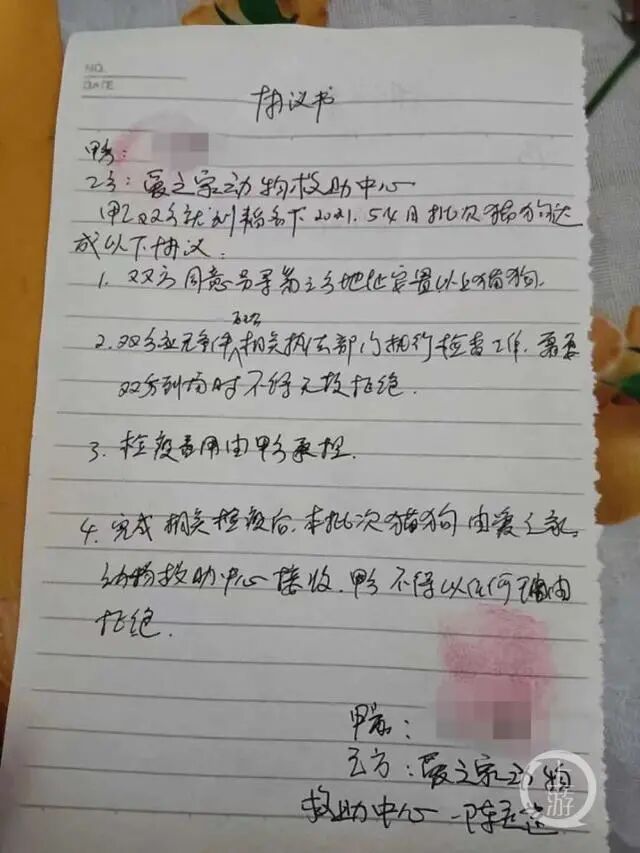 NO.
DATE
协议书
甲方:
乙方: 爱之家动物救助中心
甲乙双方就刘 名下 2021.5.4日批次猫狗达
成以下协议:
1. 双方同意另寻第三方地址安置以上猫狗.
配合
2. 双方应无条件相关执法部门执行检查工作, 需要
双方到场时不得无故拒绝.
3. 检疫费用由甲方承担.
4. 完成相关检疫后, 本批次猫狗由爱之家
动物救助中心接收, 甲方不得以任何理由
拒绝.
甲方:
乙方: 爱之家动物
救助中心 陈
游